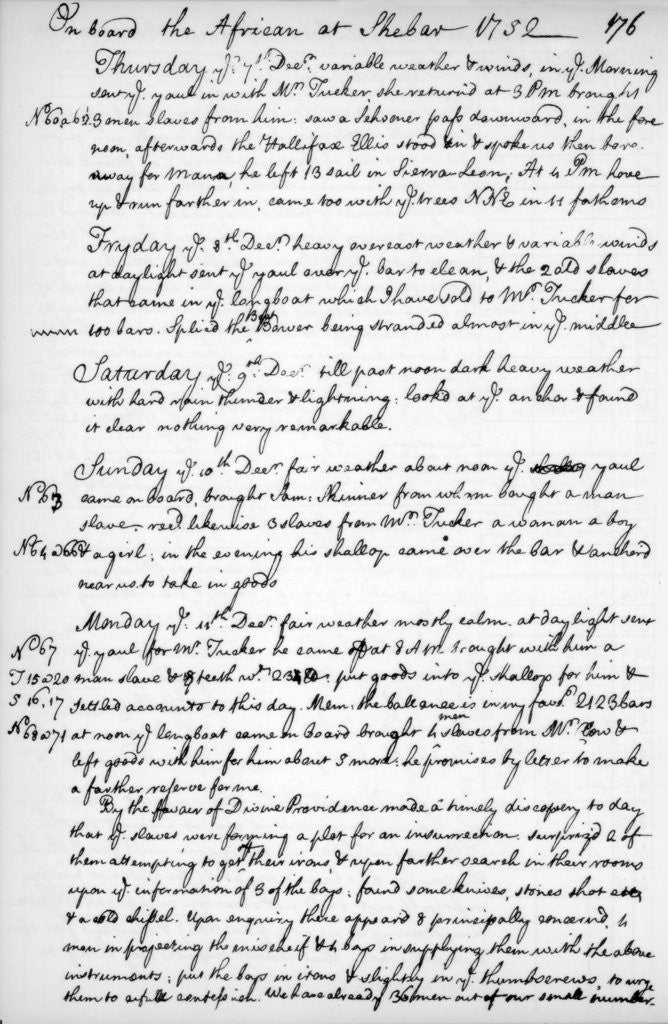 On board the African at Shebar 1752 176
Thursday yᵉ 7ᵗʰ Decʳ variable weather & winds, in yᵉ Morning
sent yᵉ yaul in with Mʳ Tucker, she return'd at 3 PM brought
No 60 a 62 3 men slaves from him: saw a Schooner pass downward, in the fore
noon, afterwards the Hallifax Ellis stood in & spoke us then bore
away for Mana, he left 13 sail in Sierra Leon; At 4 PM hove
up & run farther in, came too with yᵉ trees NNE in 11 fathoms
Fryday yᵉ 8ᵗʰ Decʳ heavy overcast weather & variable winds
at daylight sent yᵉ yaul over yᵉ bar to clean, & the 2 old slaves
that came in yᵉ longboat which I have sold to Mʳ Tucker for
100 bars. Spliced the Best Bower being stranded almost in yᵉ middle
Saturday yᵉ 9ᵗʰ Decʳ till past noon dark heavy weather
with hard rain thunder & lightning: look'd at yᵉ anchor & found
it clear nothing very remarkable.
Sunday yᵉ 10ᵗʰ Decʳ fair weather about noon yᵉ yaul
No 63 came on board, brought Sam: Skinner from whom bought a man
slave, recᵈ likewise 3 slaves from Mʳ Tucker a woman a boy
No 64 a 66 & a girl: in the evening his shallop came over the bar & anchord
near us to take in goods
Monday yᵉ 11ᵗʰ Decʳ fair weather mostly calm. at daylight sent
No 67 yᵉ yaul for Mʳ Tucker he came off at 8 AM brought with him a
T 15 a 20 man slave & teeth wᵗ put goods into yᵉ shallop for him &
S 16, 17 settled accounts to this day. Mem: the ballance is in my favʳ 2123 bars
No 68 a 71 at noon yᵉ longboat came on board brought 4 men slaves from Mʳ Tow &
left goods with him for him about 5 more: he promises by letter to make
a farther reserve for me.
By the favour of Divine Providence made a timely discovery to day
that yᵉ slaves were forming a plot for an insurrection. surpriz'd 2 of
them attempting to get off their irons, & upon farther search in their rooms
upon yᵉ information of 3 of the boys: found some knives, stones shot &
& a cold chissel. Upon enquiry there appeard 8 principally concernd,
men in projecting the mischeif & 4 boys in supplying them with the above
instruments: put the boys in irons & slightly in yᵉ thumbscrews, to urge
them to a full confession. We have already 36 men out of our small number.